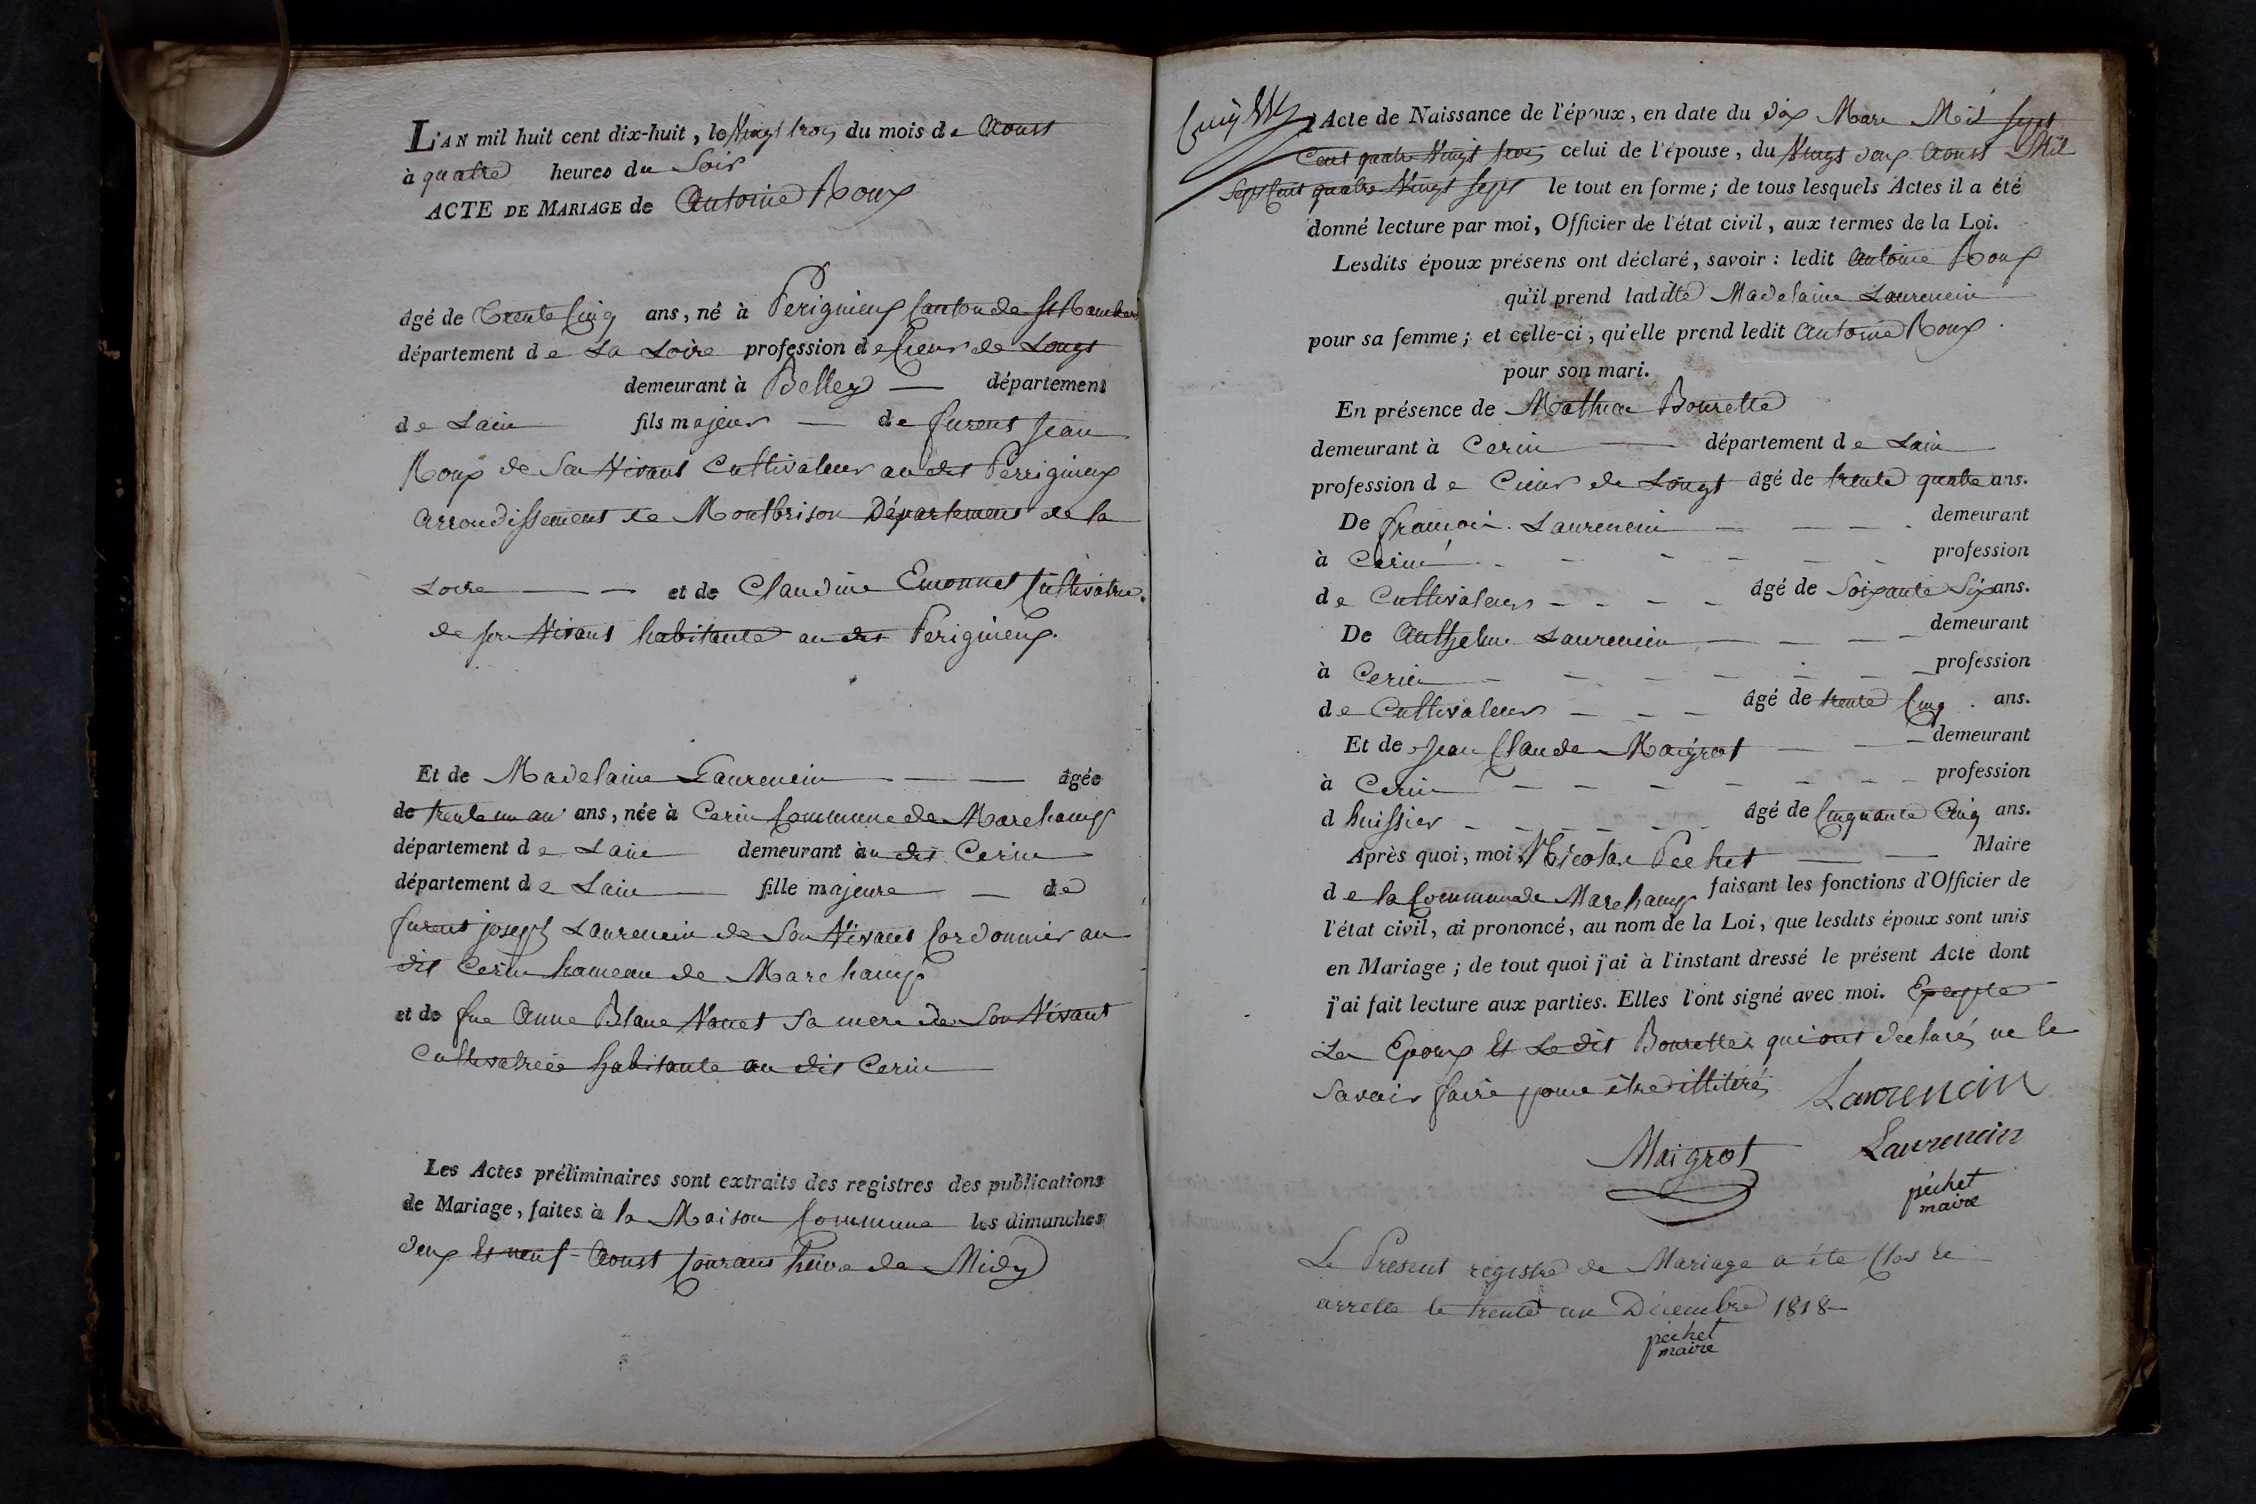 L'AN mil huit cent dix-huit, le Vingt trois du mois de Aoust
à quatre heures du Soir
ACTE DE MARIAGE de Antoine Roux
âgé de trente Cinq ans, né à Perignieux Canton de St Rambert
département de La Loire profession de Cieur de Longt
demeurant à Belley — département
de Lain fils majeur — de furent Jean
Roux de Son Vivant Cultivateur au dit Perrignieux
Arrondissement de Montbrison Département de la
Loire — — et de Claudine Emonnet Cultivatrice
de son Vivant habitante au dit Perignieux.
Et de Madelaine Laurencin — — âgée
de trente un an ans, née à Cerin Commune de Marchamp
département de Lain demeurant au dit Cerin
département de Lain — fille majeure — de
furent joseph Laurencin de Son Vivant Cordonnier au
dit Cerin hameau de Marchamp
et de fue Anne Blanc Vanet Sa mere de Son Vivant
Cultivatrice habitante au dit Cerin
Les Actes préliminaires sont extraits des registres des publications
de Mariage, faites à la Maison Commune les dimanches
deux Et neuf Aoust Courant heure de Midy
Acte de Naissance de l'époux, en date du dix Mars Mil Sept
Cent quatre Vingt trois celui de l'épouse, du Vingt deux Aoust Mil
Sept Cent quatre Vingt Sept le tout en forme; de tous lesquels Actes il a été
donné lecture par moi, Officier de l'état civil, aux termes de la Loi.
Lesdits époux présens ont déclaré, savoir : ledit Antoine Roux
qu'il prend ladditte Madelaine Laurencin
pour sa femme; et celle-ci, qu'elle prend ledit Antoine Roux.
pour son mari.
En présence de Mathieu Bourette
demeurant à Cerin — département de Lain
profession de Cieur de Longt âgé de trente quatre ans.
De françois Laurencin — — — demeurant
à Cerin - - - - - - profession
de Cultivateur - - - - âgé de Soixante Six ans.
De Anthelme Laurencin — — — demeurant
à Cerin - - - - - - profession
de Cultivateur - - - âgé de trente Cinq ans.
Et de Jean Claude Maigrot — — — demeurant
à Cerin - - - - - - profession
d huissier - - - - - âgé de Cinquante Cinq ans.
Après quoi, moi, Nicolas Pechet — — Maire
de la Commune de Marchamp faisant les fonctions d'Officier de
l'état civil, ai prononcé, au nom de la Loi, que lesdits époux sont unis
en Mariage; de tout quoi j'ai à l'instant dressé le présent Acte dont
j'ai fait lecture aux parties. Elles l'ont signé avec moi. Excepte
Les Epoux Et Le dit Bourette qui ont déclaré ne le
Savoir faire pour être illitéré
Laurencin
Maigrot
Laurencin
péchet
maire
Le Présent registre de Mariage a été Clos et
arrette le trente un Décembre 1818 —
péchet
maire